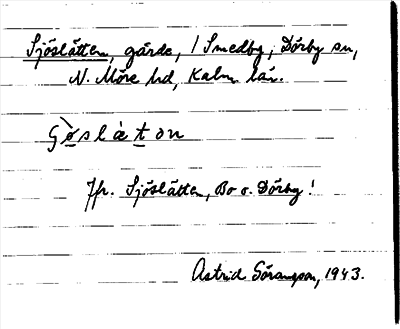 Sjöslätten, gärde, i Smedby, Dörby sn,
N. Möre hd, Kalm. län.
Jfr. Sjöslätten, Bo o. Dörby!
Astrid Göransson, 1943.